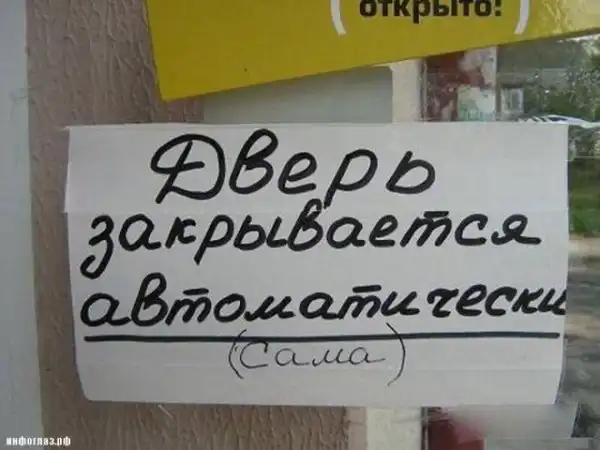 открыто!
Дверь
закрывается
автоматически
(сама)
инфоглаз.рф